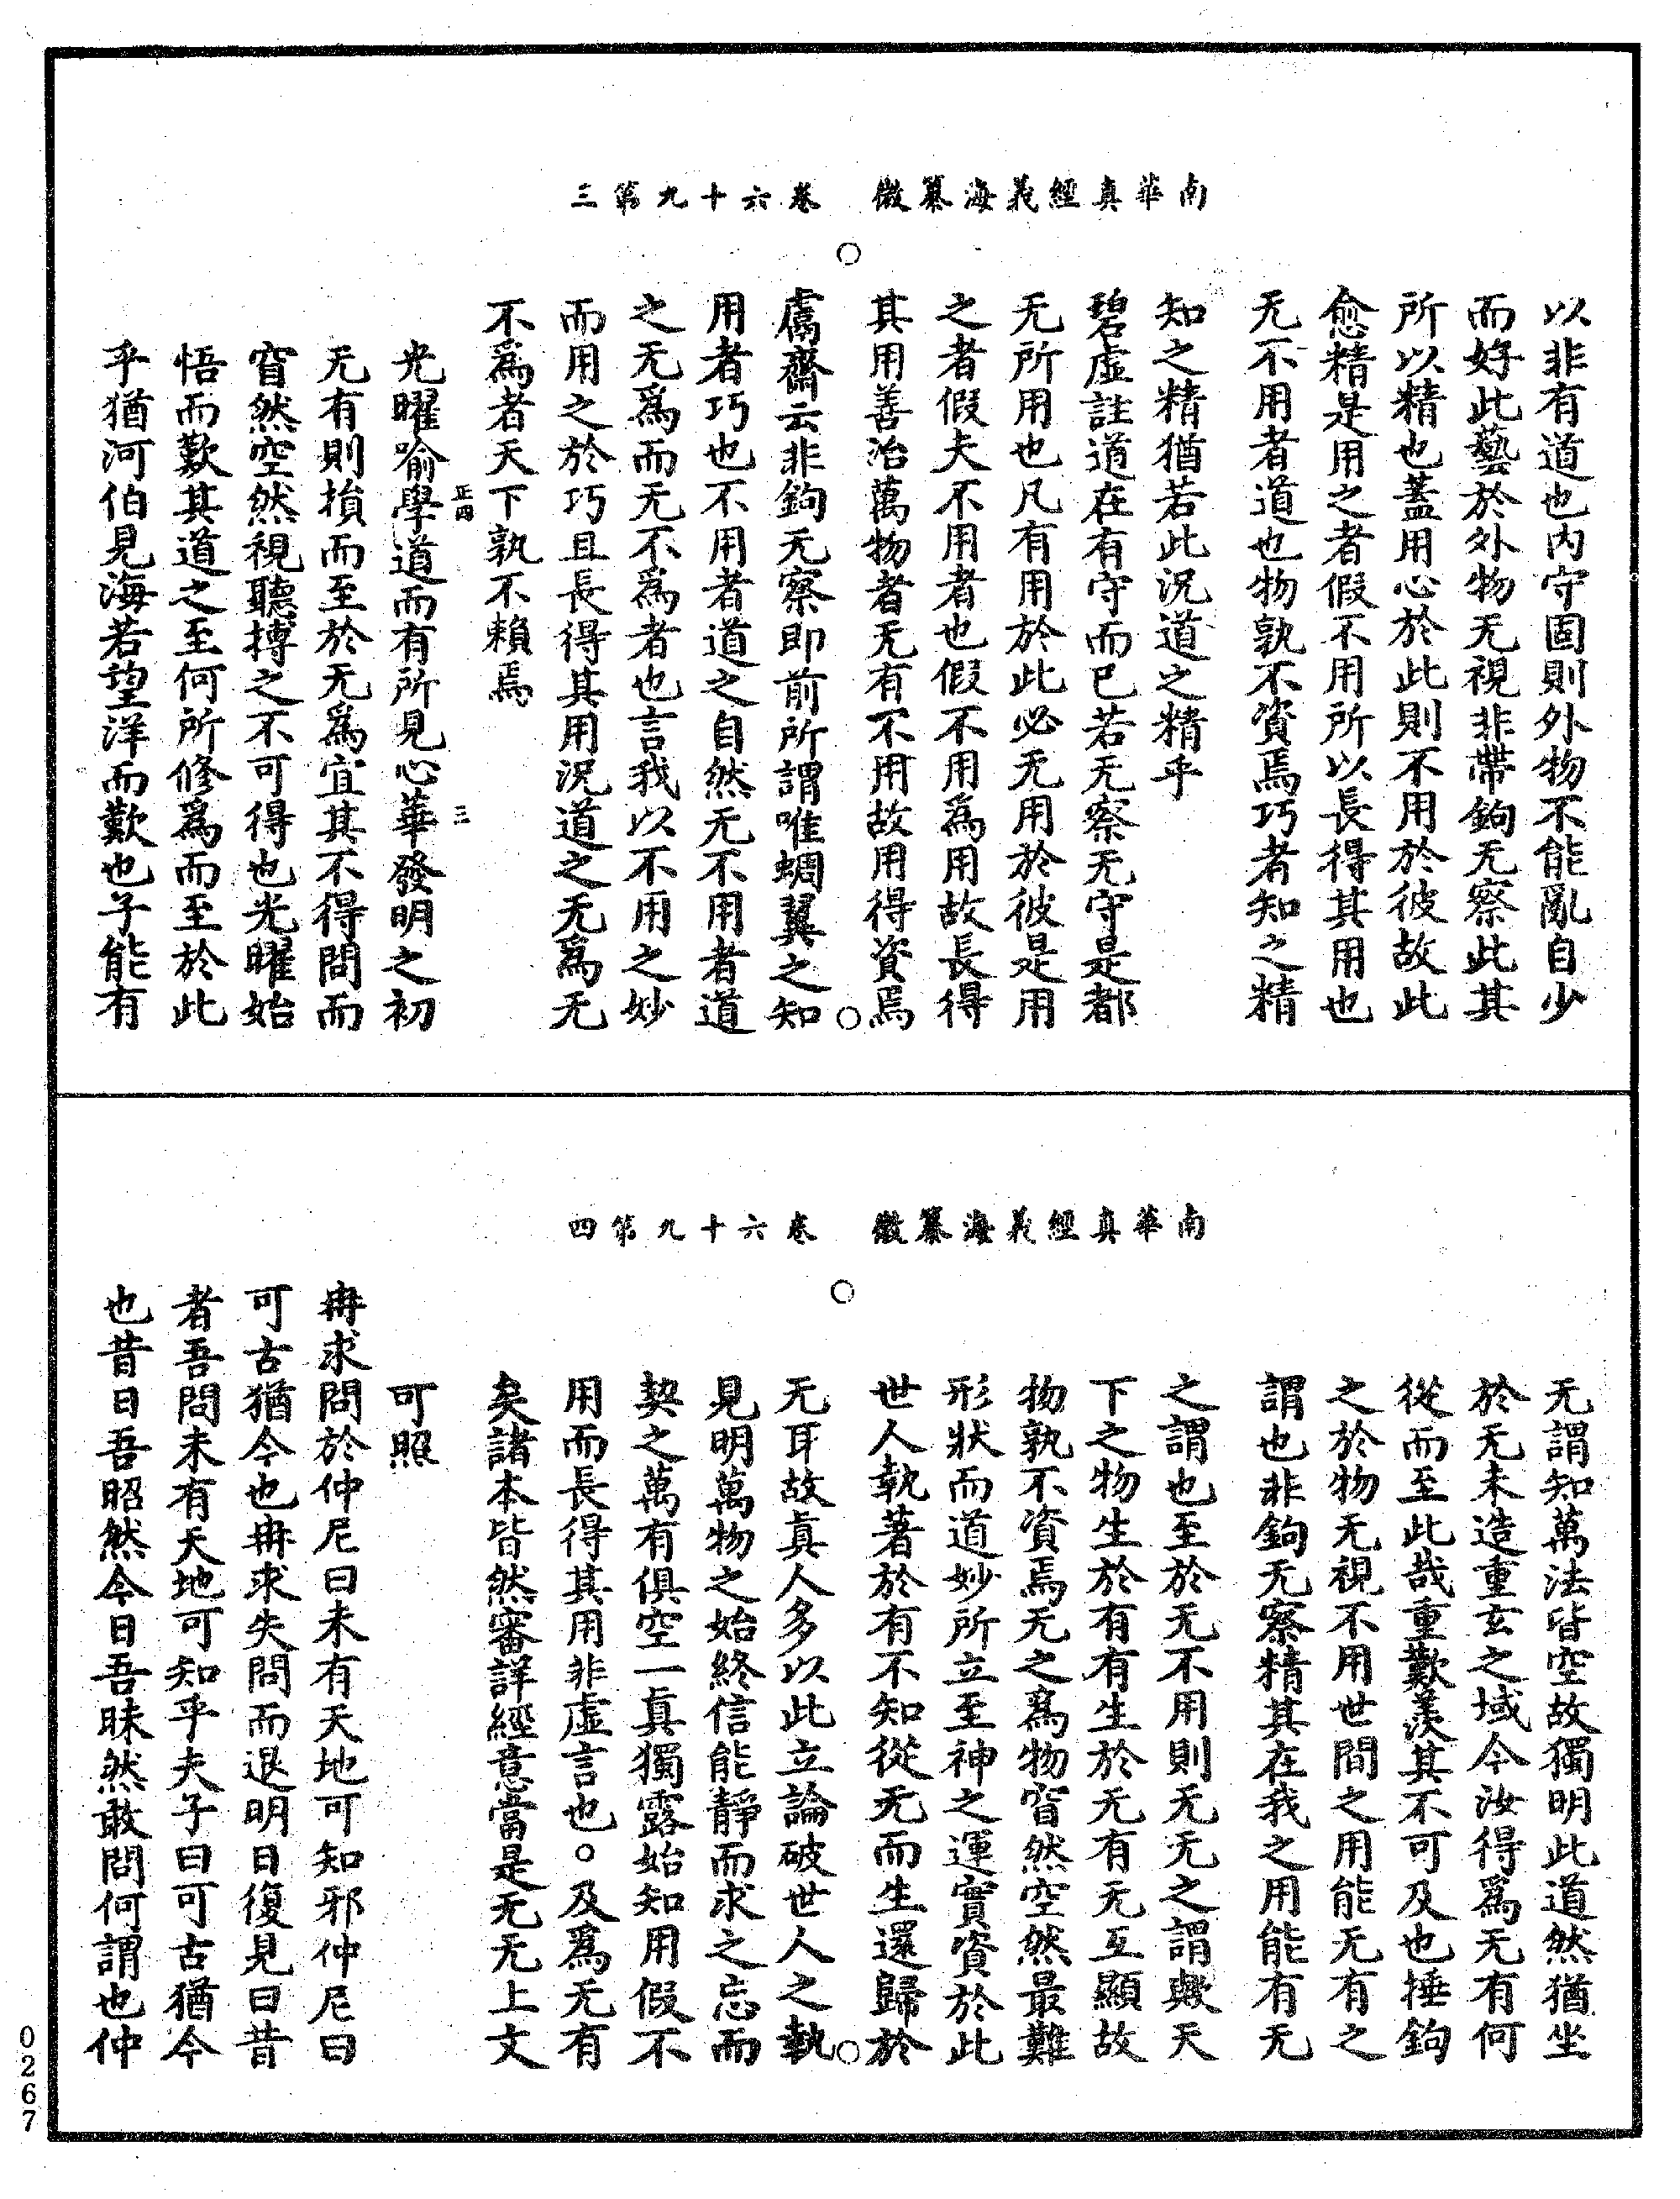 南華真經義海纂微　卷六十九第三
以非有道也內守固則外物不能亂自少
而好此藝於外物无視非帶鉤无察此其
所以精也蓋用心於此則不用於彼故此
愈精是用之者假不用所以長得其用也
无不用者道也物孰不資焉巧者知之精
知之精猶若此況道之精乎
碧虛註道在有守而已若无察无守是都
无所用也凡有用於此必无用於彼是用
之者假夫不用者也假不用為用故長得
其用善治萬物者无有不用故用得資焉
鬳齋云非鉤无察即前所謂唯蜩翼之知
用者巧也不用者道之自然无不用者道
之无為而无不為者也言我以不用之妙
而用之於巧且長得其用況道之无為无
不為者天下孰不賴焉
光曜喻學道而有所見心華發明之初
正四　三
无有則損而至於无為宜其不得問而
窅然空然視聽搏之不可得也光曜始
悟而歎其道之至何所修為而至於此
乎猶河伯見海若望洋而歎也予能有
南華真經義海纂微　卷六十九第四
无謂知萬法皆空故獨明此道然猶坐
於无未造重玄之域今汝得為无有何
從而至此哉重歎羨其不可及也捶鉤
之於物无視不用世間之用能无有之
謂也非鉤无察精其在我之用能有无
之謂也至於无不用則无无之謂歟天
下之物生於有有生於无有无互顯故
物孰不資焉无之為物窅然空然最難
形狀而道妙所立至神之運實資於此
世人執著於有不知從无而生還歸於
无耳故真人多以此立論破世人之執
見明萬物之始終信能靜而求之忘而
契之萬有俱空一真獨露始知用假不
用而長得其用非虛言也。及為无有
矣諸本皆然審詳經意當是无无上文
可照
冉求問於仲尼曰未有天地可知邪仲尼曰
可古猶今也冉求失問而退明日復見曰昔
者吾問未有天地可知乎夫子曰可古猶今
也昔日吾昭然今日吾昧然敢問何謂也仲
0267